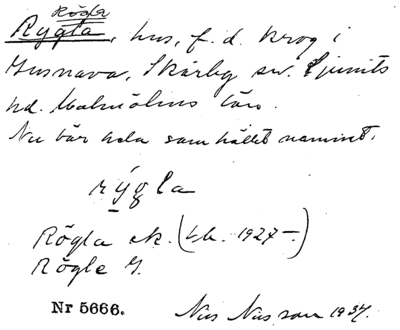 Rögla
Rygla, hus, f. d. krog i
Gusnava, Skårby sn. Ljunits
hd. Malmöhus län.
Nu bär hela samhället namnet.
rýgla
Rögla ek. (Lb. 1927–)
Rögle G.
Nr 5666. Nils Nilsson 1937.